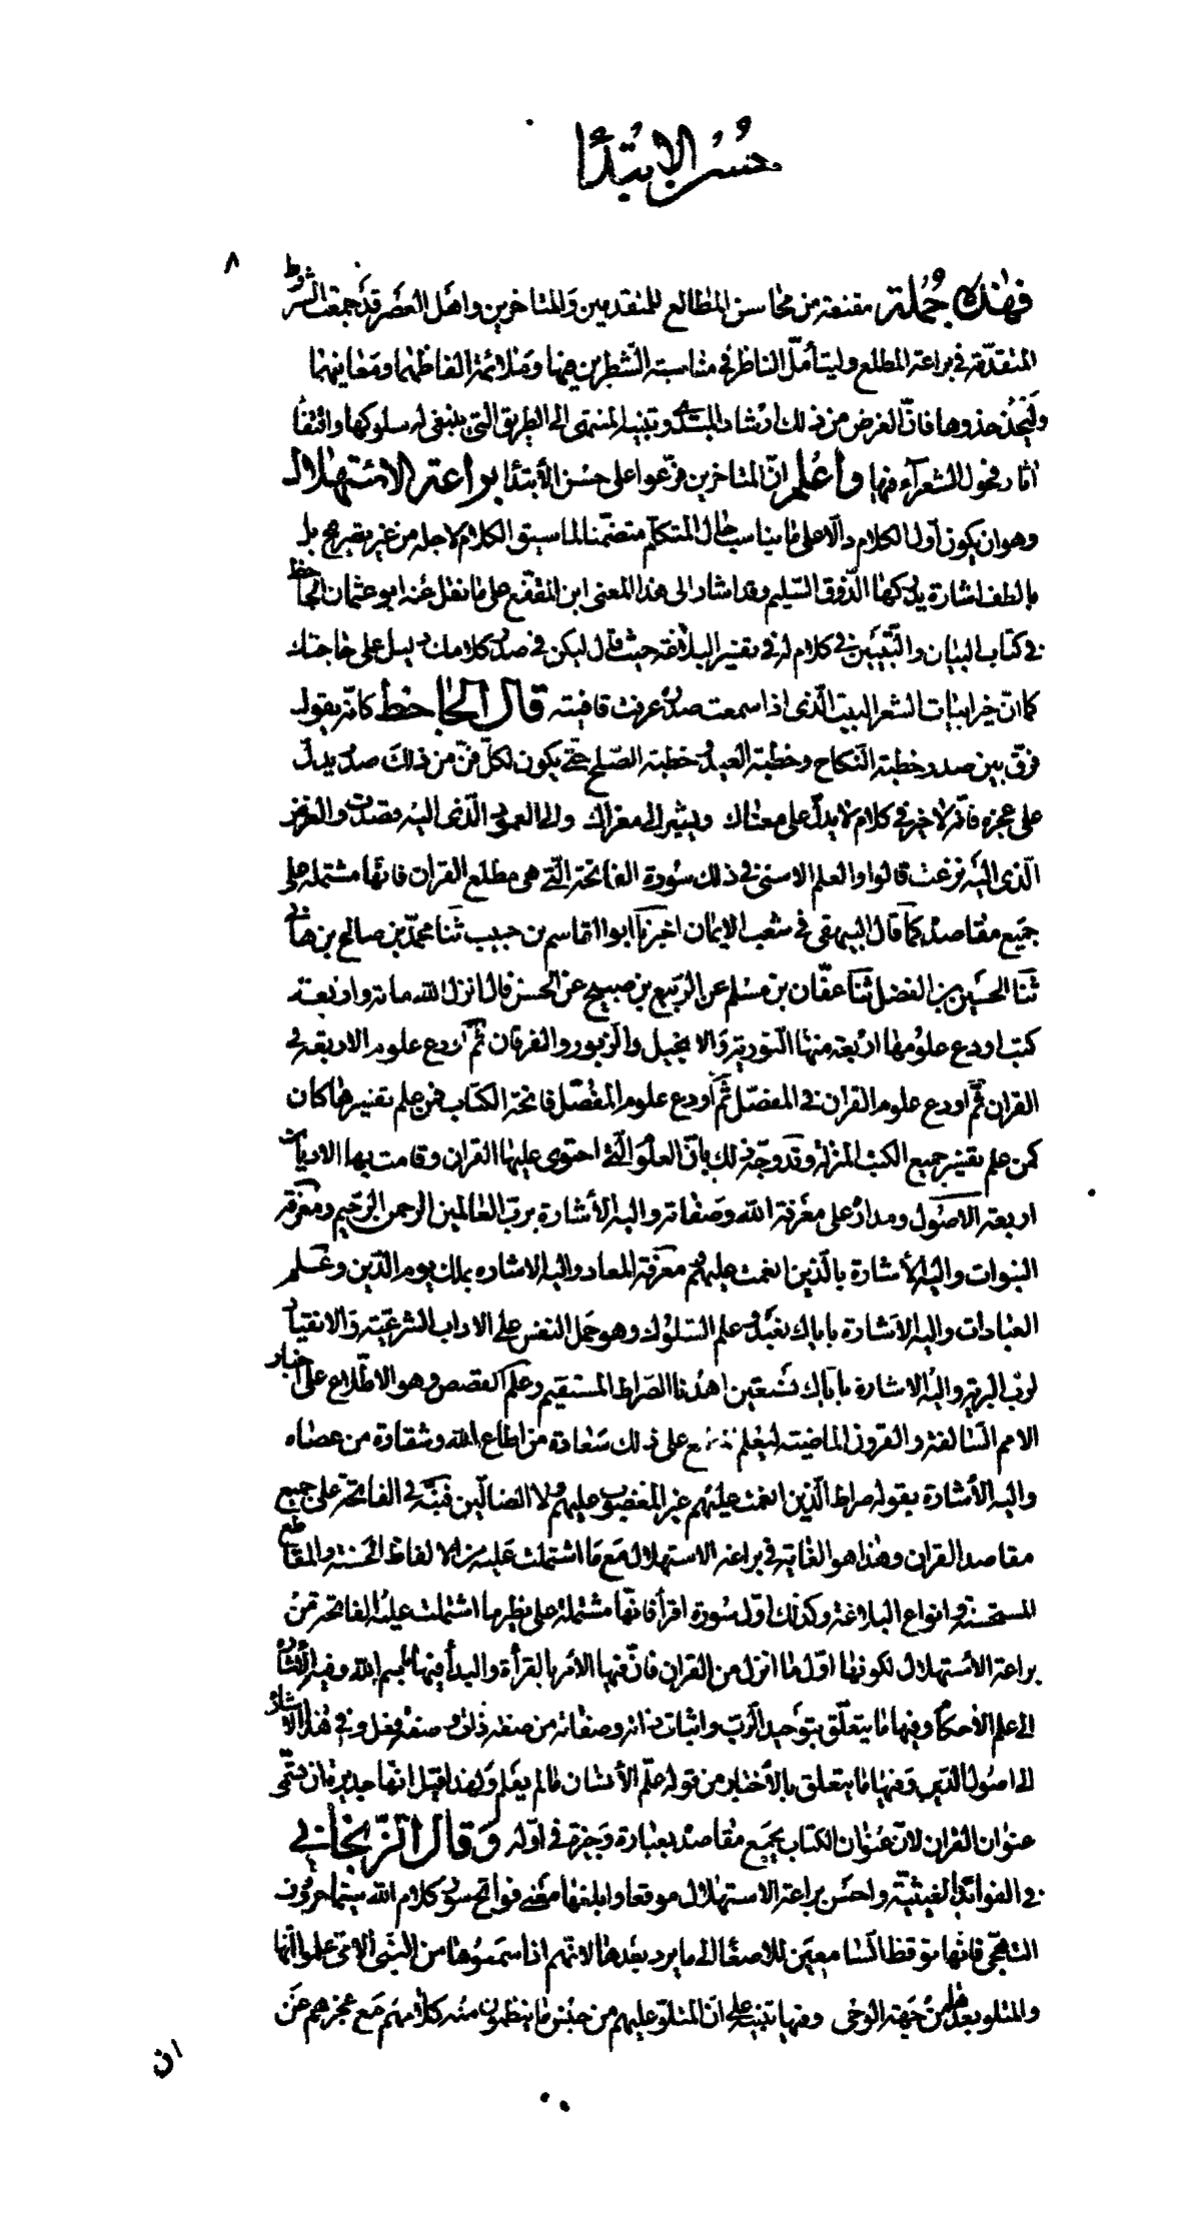 حُسْنُ الابْتِدَأ
٨
فهٰذه جُملة مقنعة من محاسن المطالع للمتقدمين والمتاخرين واهل العصر قد جمعت الشروط
المتقدّمة في براعة المطلع وليتأمل الناظر في مناسبة الشطرين منها وملائمة الفاظهما ومعانيهما
وليحذ حذوها فانّ الغرض من ذلك ارشاد المبتدى وتنبيه المنتهى الى الطريق التي ينبغي له سلوكها واقتفا
اثار فحول الشعرآء فيها واعلم انّ المتاخرين فرّعوا على حسن الأبتدا براعة الاستهلال
وهو ان يكون اول الكلام دالا على ما يناسب حال المتكلم متضمنا لما سيق الكلام لاجله من غير تصريح بل
بالطف اشارة يدركها الذّوق السّليم وقد اشار الى هذا المعنى ابن المقفّع على ما نقل عنه ابو عثمان الجاحظ
في كتاب البيان والتّبيين في كلام له في تفسير البلاغة حيث قال ليكن في صدر كلامك دليل على حاجتك
كما انّ خير ابيات الشعر البيت الّذى اذا سمعت صدره عرفت قافيته قال الجاحظ كانّه يقول
فرّق بين صدر خطبة النّكاح وخطبة العيد وخطبة الصّلح حتّى يكون لكلّ فنّ من ذلك صدر يدلّ
على عجزه فانّه لا خير في كلام لا يدلّ على معناك ويشير الى مغزاك والى العمود الّذى اليه قصدت والغرض
الّذى اليه نزعت قالوا والعلم الاسنى في ذلك سورة الفاتحة الّتي هى مطلع القران فانّها مشتملة على
جميع مقاصده كما قال البيهقى في شعب الايمان اخبرنا ابو القاسم بن حبيب ثنا محمّد بن صالح بن هانى
ثنا الحسين بن الفضل ثنا عفّان بن مسلم عن الرّبيع بن صبيح عن الحسن قال انزل الله مائة واربعة
كتب اودع علومها اربعة منها التورية والانجيل والزبور والفرقان ثم اودع علوم الاربعة في
القران ثمّ اودع علوم القران في المفصّل ثم اودع علوم المفصّل فاتحة الكتاب فمن علم تفسيرها كان
كمن علم تفسير جميع الكتب المنزلة وقد وجّه ذلك بانّ العلوم الّتي احتوى عليها القران وقامت بها الاديان
اربعة الاصول ومداره على معرفة الله وصفاته واليه الأشارة بربّ العالمين الرحمن الرّحيم ومعرفة
النبوات واليه الأشارة بالّذين انعمت عليهم ومعرفة المعاد واليه الاشاره بملك يوم الدّين وعلم
العبادات واليه الاشارة باياك نعبد وعلم السّلوك وهو حمل النفس على الاداب الشرعيّة والانقياد
لرب البرية واليه الاشارة باياك نستعين اهدنا الصّراط المستقيم وعلم القصص وهو الاطّلاع على اخبار
الامم السّالفة والقرون الماضية ليعلم المطلع على ذلك سعادة من اطاع الله وشقاوة من عصاه
واليه الأشارة بقوله صراط الّذين انعمت عليهم غير المغضوب عليهم ولا الضالّين فنبّه في الفاتحة على جميع
مقاصد القران وهذا هو الغاية في براعة الاستهلال مع ما اشتملت عليه من الالفاظ الحسنة والمقاطع
المستحسنة وانواع البلاغة وكذلك اوّل سورة اقرأ فانّها مشتملة على نظير ما اشتملت عليه الفاتحة من
براعة الاستهلال لكونها اوّل ما انزل من القران فانّ فيها الامر بالقرأة والبدأ فيها بسم الله وفيه الأشارة
الى علم الأحكام وفيها ما يتعلّق بتوحيد الرّب واثبات ذاته وصفاته من صفة ذات وصفة فعل وفي هذا الاشارة
الى اصول الدّين وفيها ما يتعلق بالأخبار من قوله علّم الأنسان ما لم يعلم ولهذا قيل انّها جديرة ان تسمّى
عنوان القران لانّ عنوان الكتاب يجمع مقاصده بعبارة وجزة في اوّله وقال الزّنجاني
في الفوائد الغيثيّة واحسن براعة الاستهلال موقعا وابلغها معنى فواتح سور كلام الله سيّما حروف
التهجّي فانّها توقظ السّامعين للاصغا الى ما يرد بعدها لانّهم اذا سمعوها من النّبى الامّي علموا انّها
والمتلو بعدها من جهة الوحى وفيها تنبيه على انّ المتلوّ عليهم من جنس ما ينظمون منه كلامهم مع عجزهم عن
ان